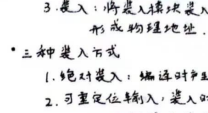 3. 装入：将装入模块装入
形成物理地址.
• 三种装入方式
1. 绝对装入：编译时产生
2. 可重定位装入，装入时